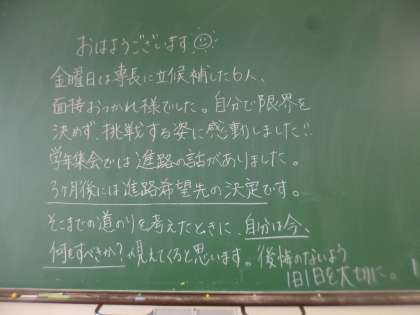 おはようございます☺
金曜日は専長に立候補した6人、
面接おつかれ様でした。自分で限界を
決めず、挑戦する姿に感動しました!!
学年集会では進路の話がありました。
3ヶ月後には進路希望先の決定です。
そこまでの道のりを考えたときに、自分は今、
何をすべきか?が見えてくると思います。後悔のないよう
1日1日を大切に。